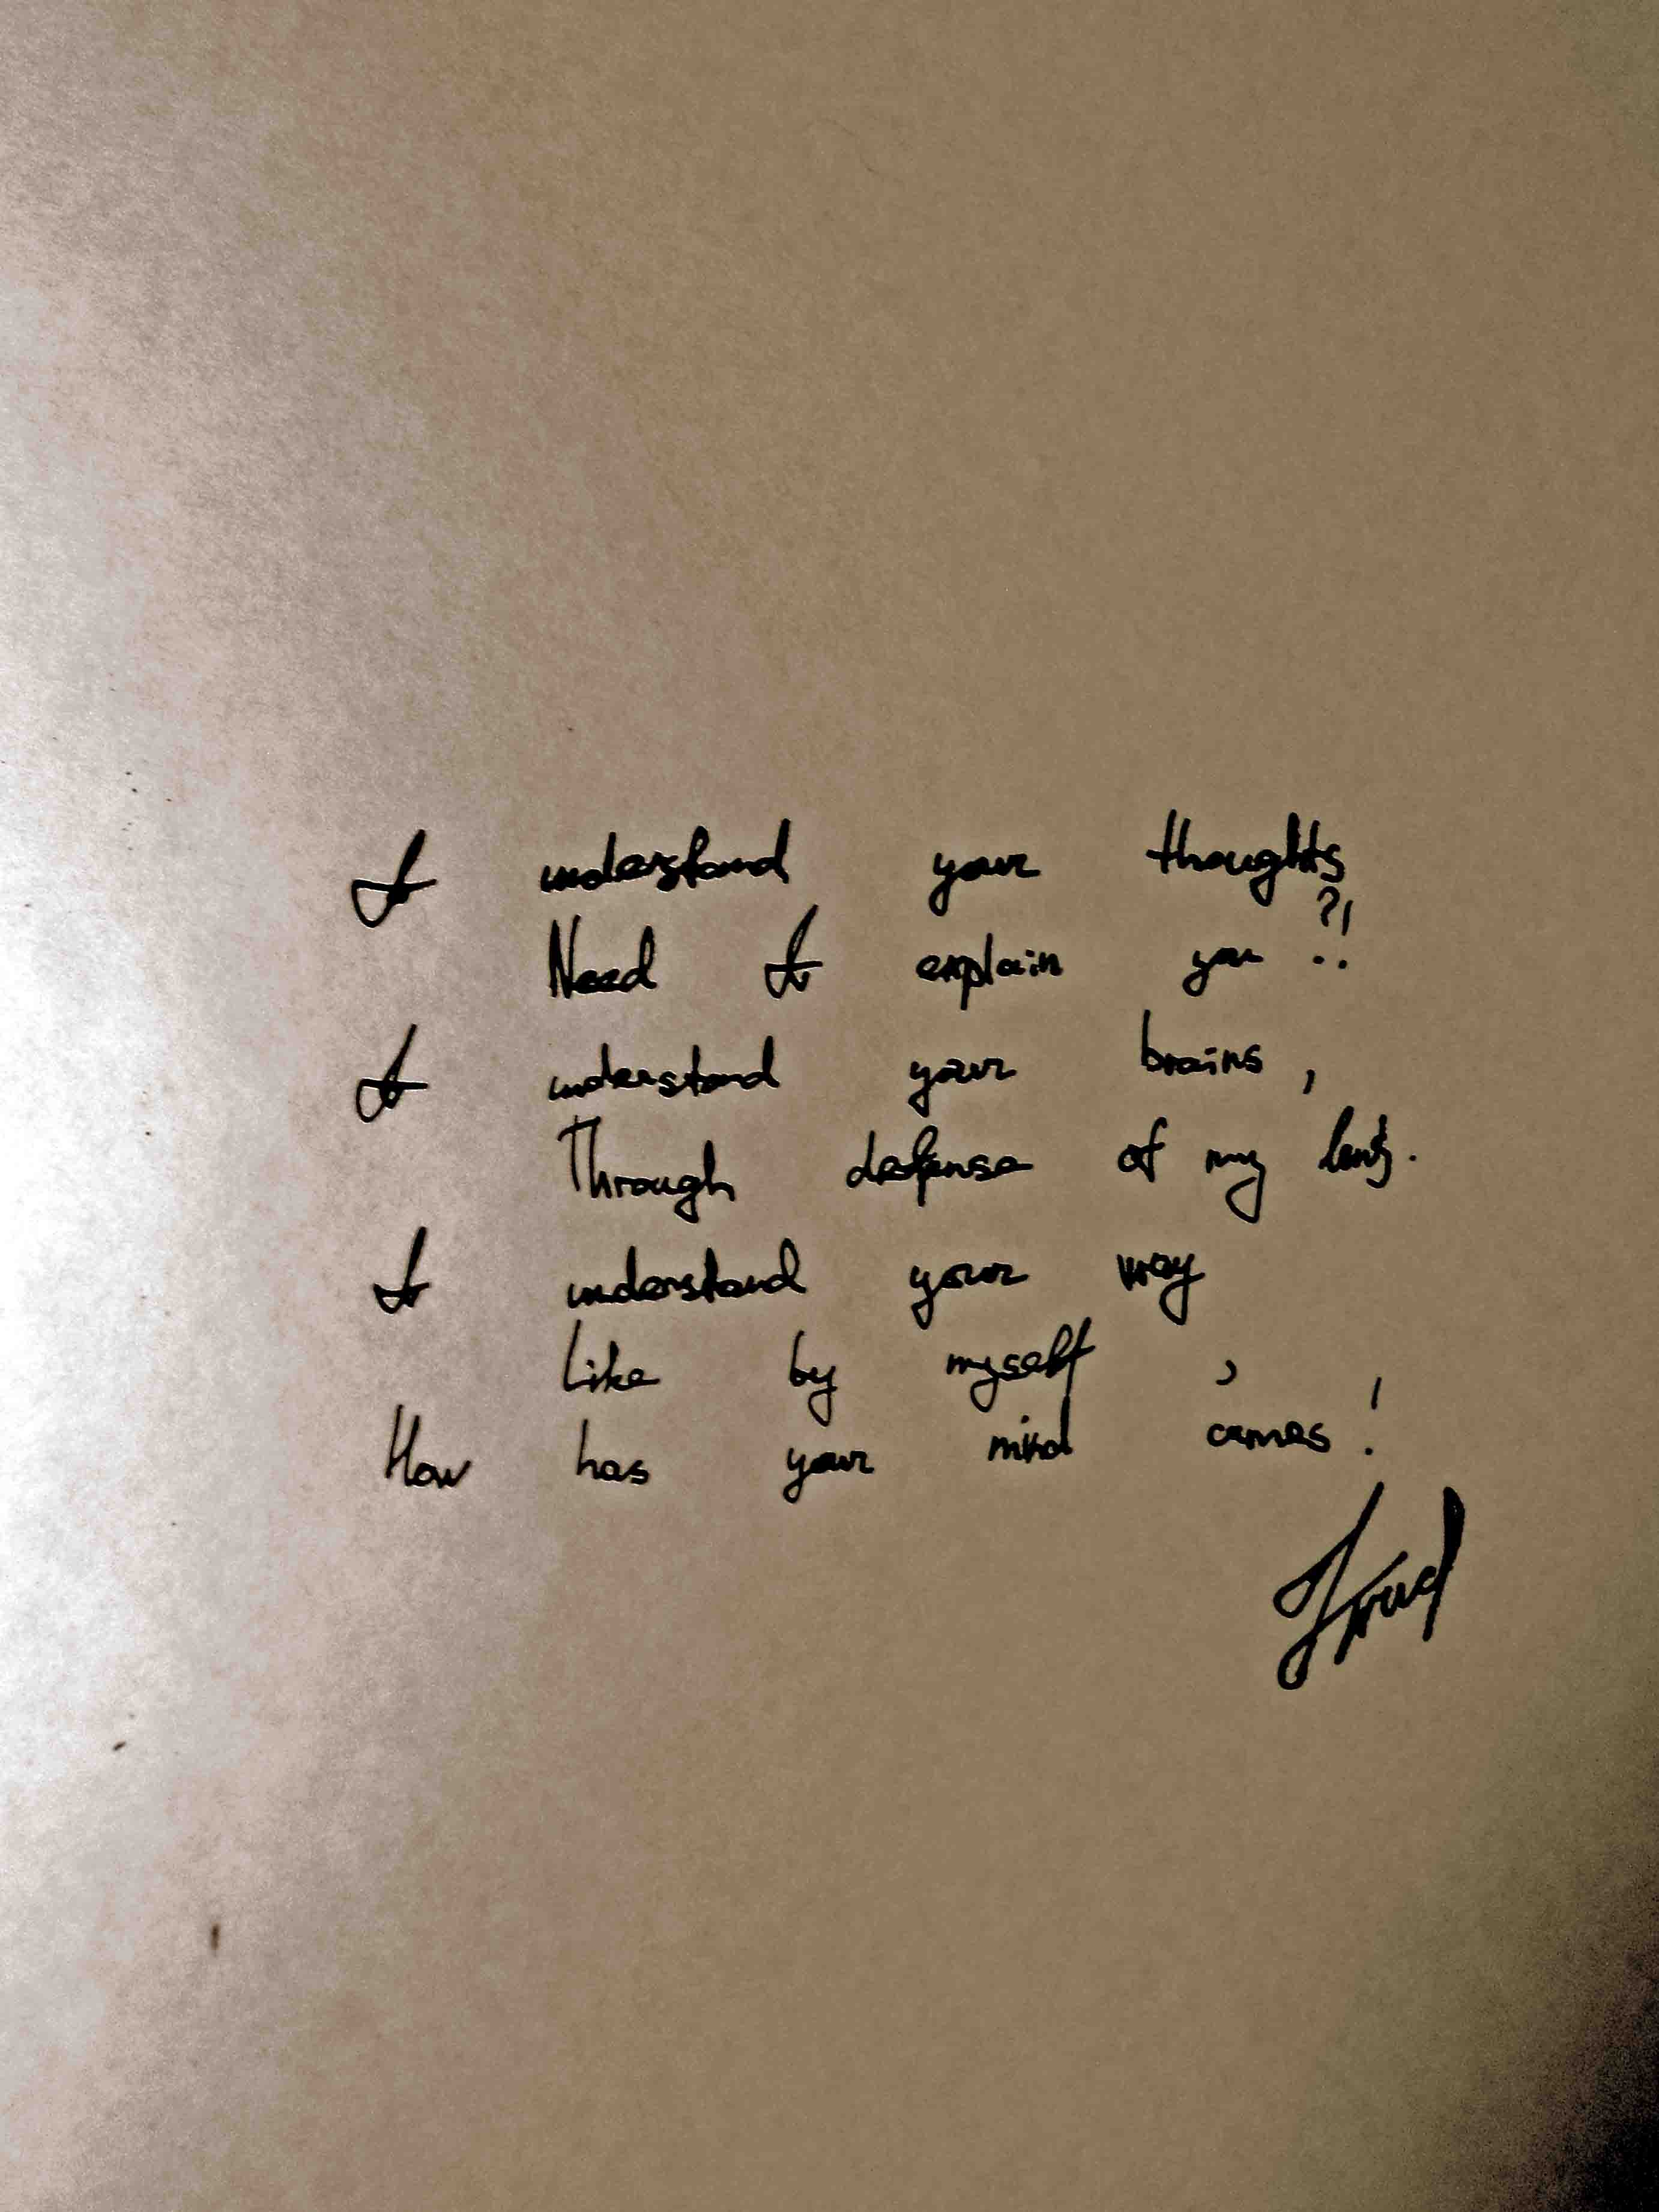 I understand your thoughts
Need I explain you ?!
I understand your brains,
Through defense of my lens.
I understand your way
Like by myself,
How has your mind comes!